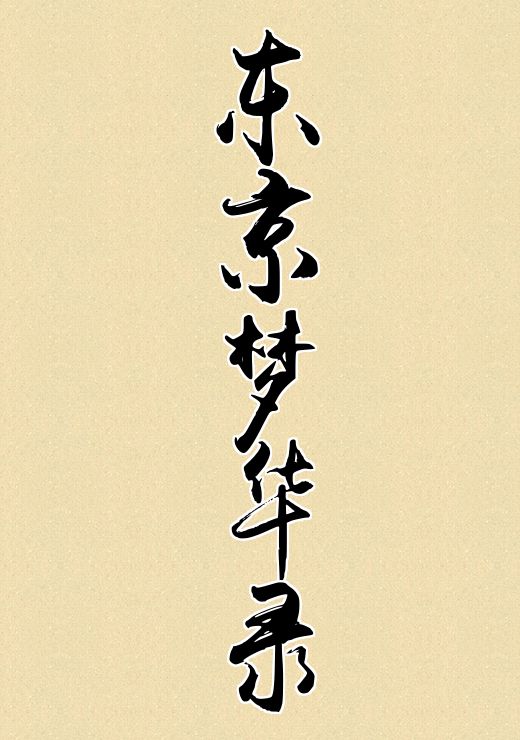 东京梦华录